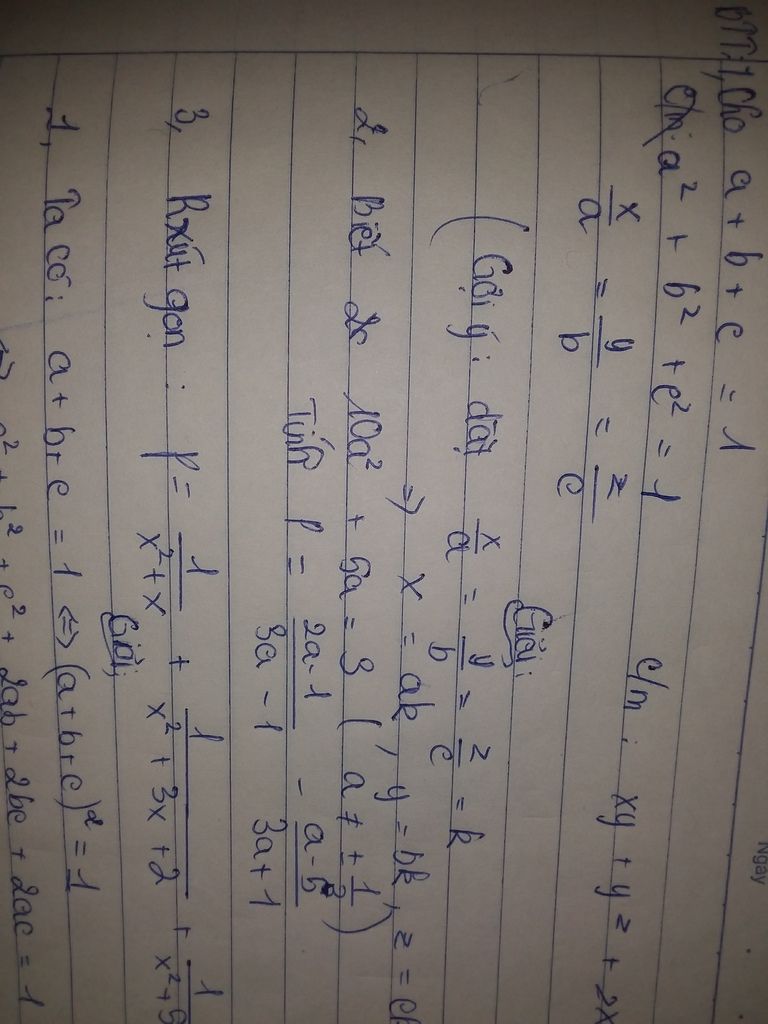 BTT: 1, Cho a + b + c = 1
a² + b² + c² = 1 c/m : xy + yz + 2x
x/a = y/b = z/c
Giải:
( Gợi ý : đặt x/a = y/b = z/c = k
⇒ x = ak , y = bk , z = ck
2, Biết 10a² + 5a = 3 ( a ≠ ± 1/3 )
Tính P = (2a-1)/(3a-1) - (a-5)/(3a+1)
3, Rxút gọn : P = 1/(x²+x) + 1/(x²+3x+2) + 1/(x²+5
Giải:
1, Ta có: a + b + c = 1 ⇔ (a+b+c)² = 1
⇔ a² + b² + c² + 2ab + 2bc + 2ac = 1
Ngày